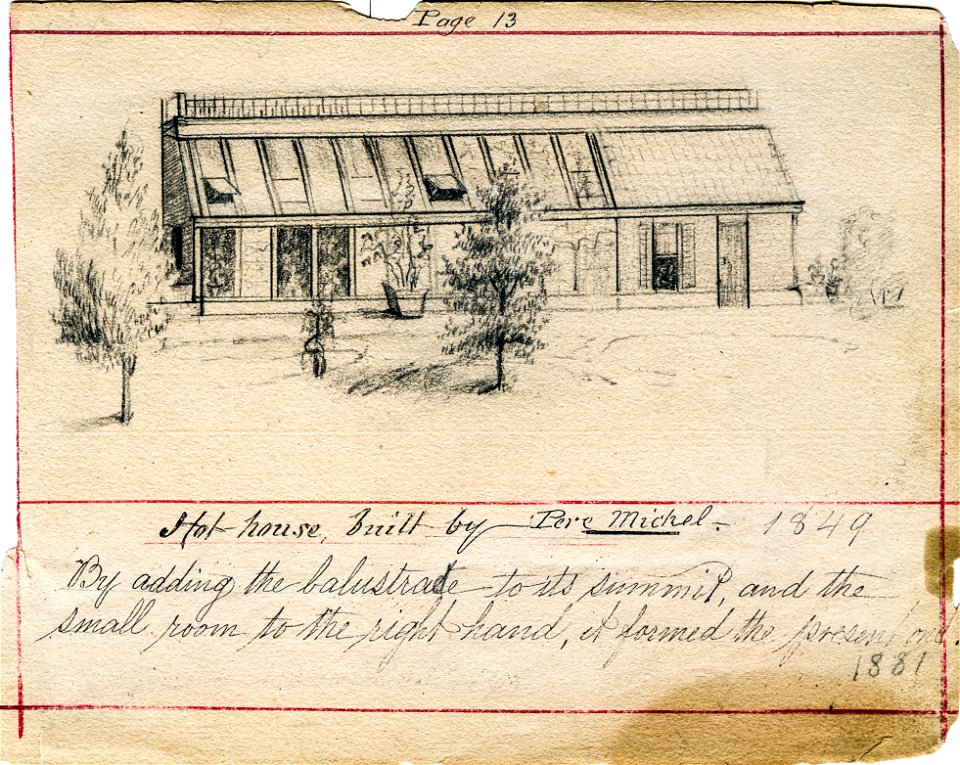 Page 13
Hot-house, built by Pere Mickel. 1849
By adding the balustrade to its summit, and the
small room to the right hand, it formed the present one.
1881